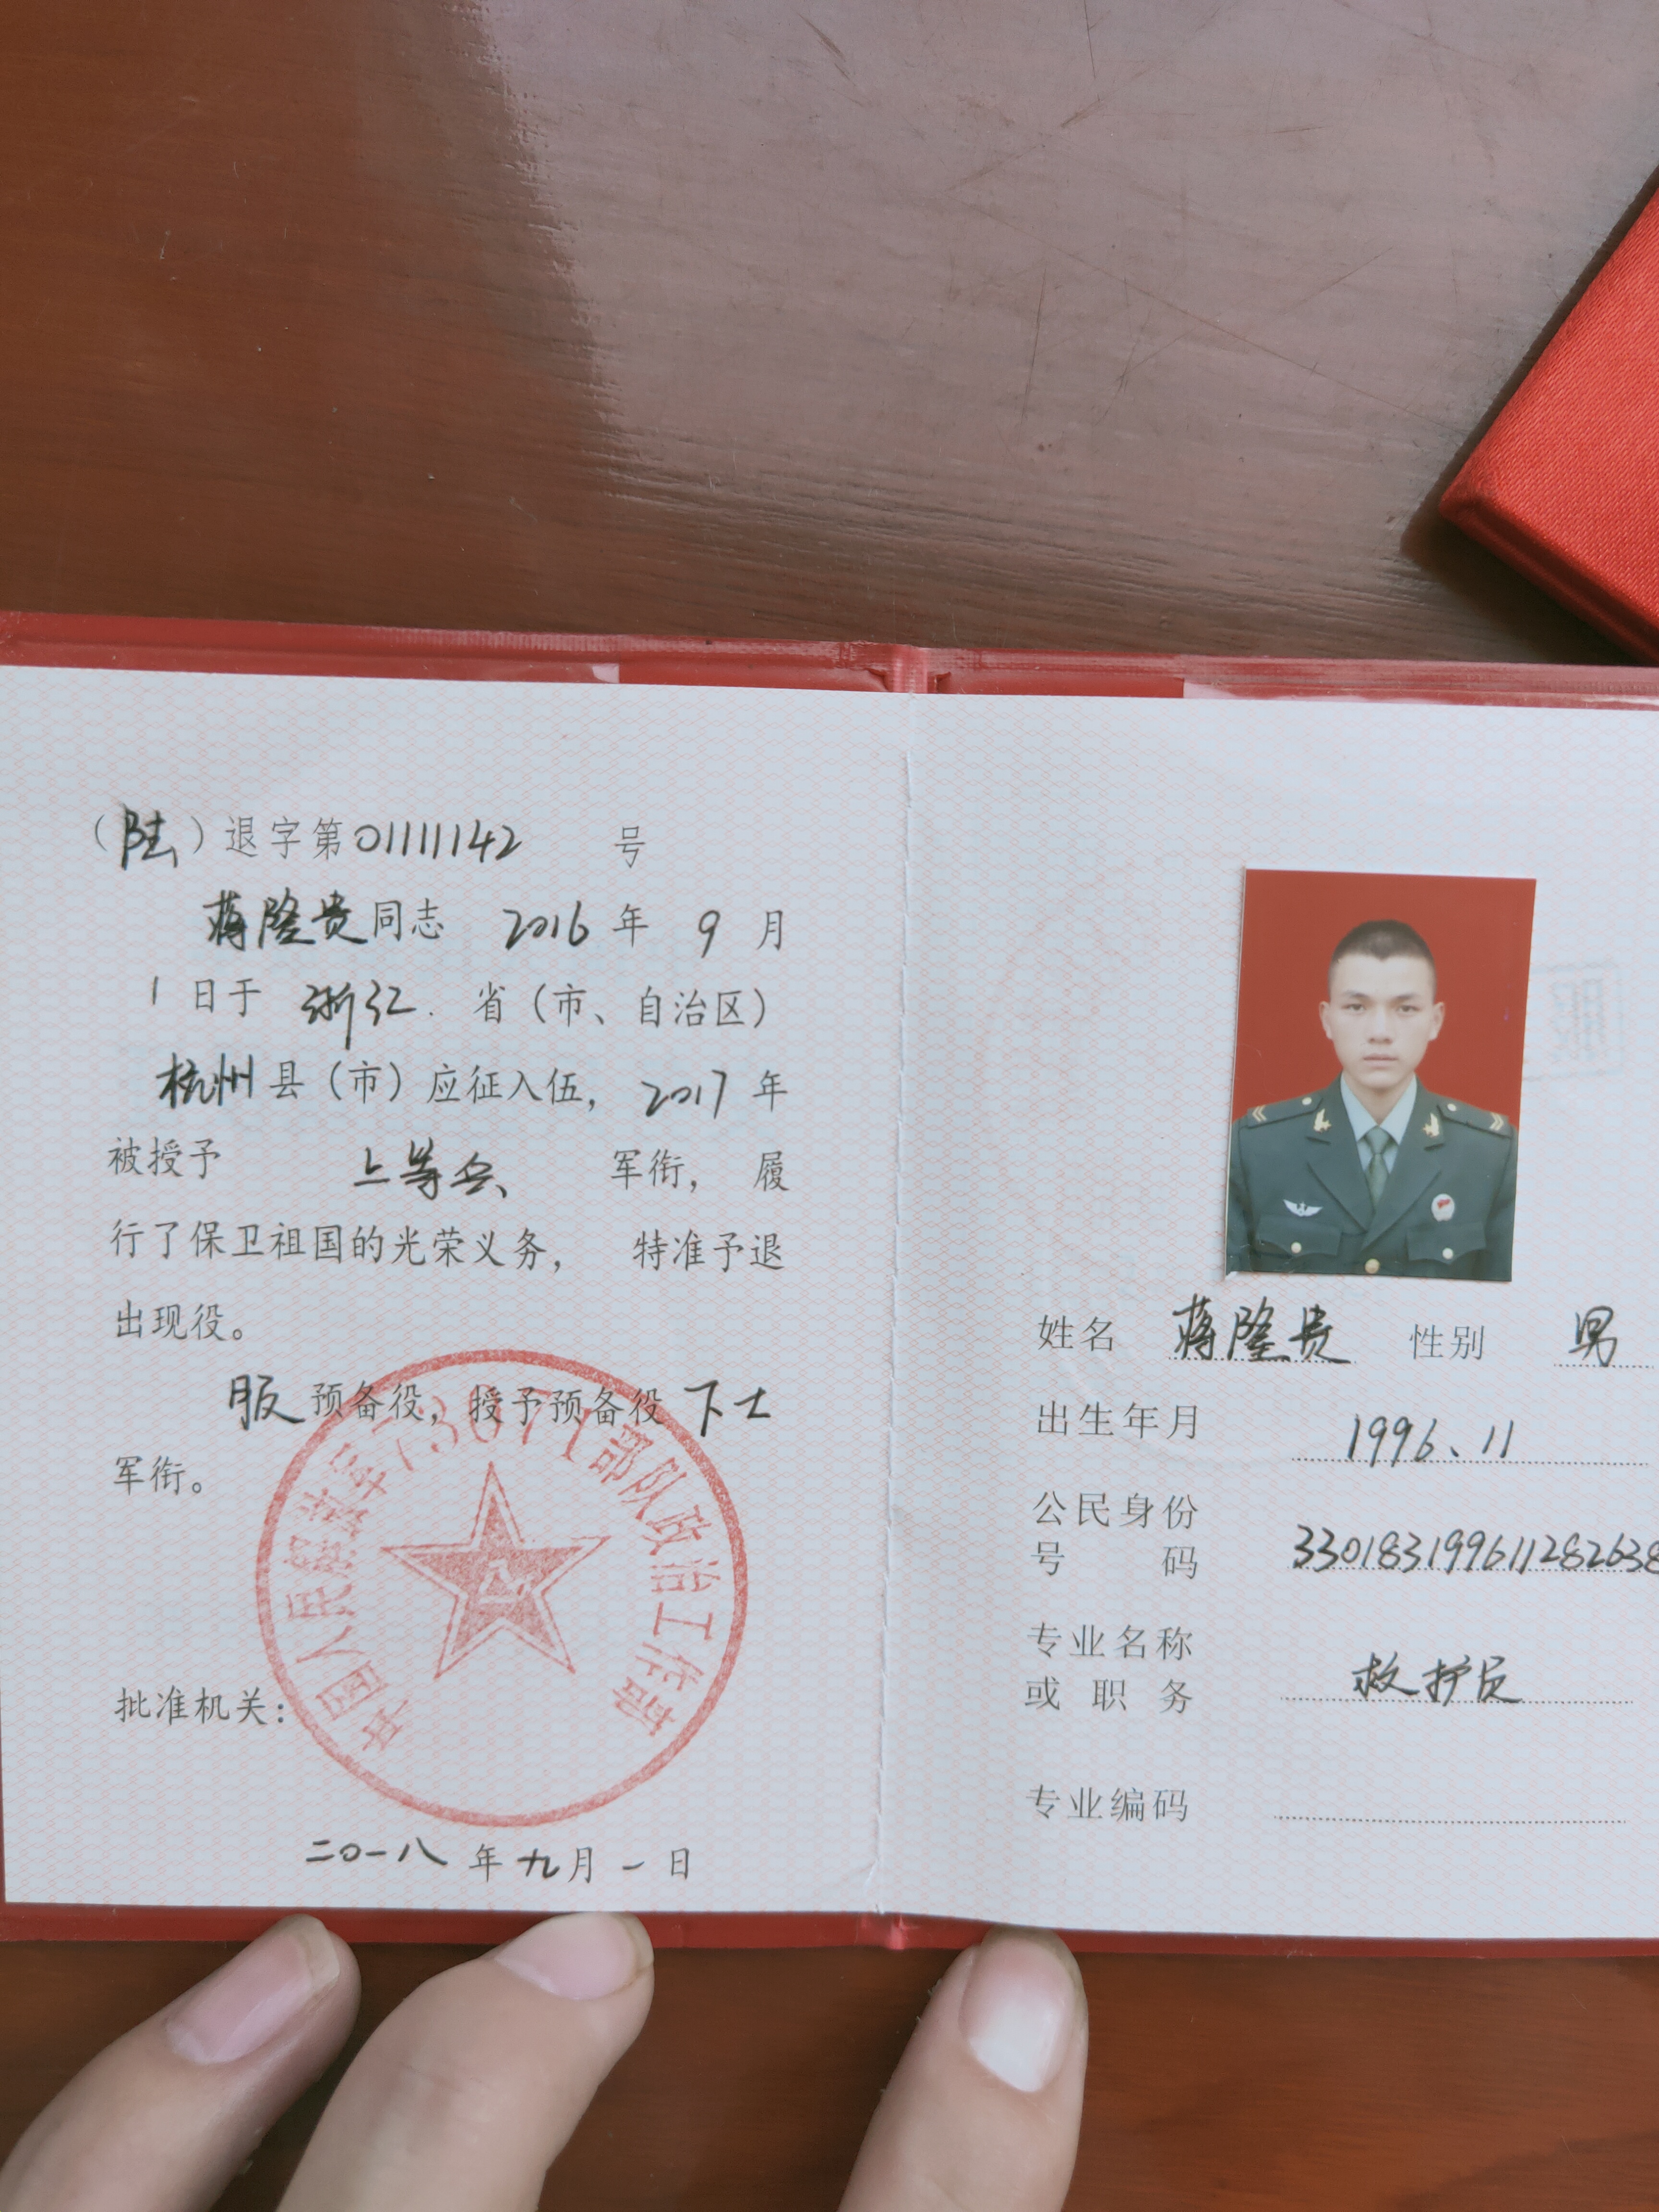 （陆）退字第01111142 号
蒋隆贵同志 2016 年 9 月
1 日于 浙江 省（市、自治区）
杭州县（市）应征入伍， 2017 年
被授予 上等兵 军衔， 履
行了保卫祖国的光荣义务， 特准予退
出现役。
服预备役，授予预备役下士
军衔。
中国人民解放军73071部队政治工作部
批准机关：
二〇一八年九月一日
姓名 蒋隆贵 性别 男
出生年月 1996、11
公民身份
号 码 330183199611282638
专业名称
或 职 务 救护员
专业编码